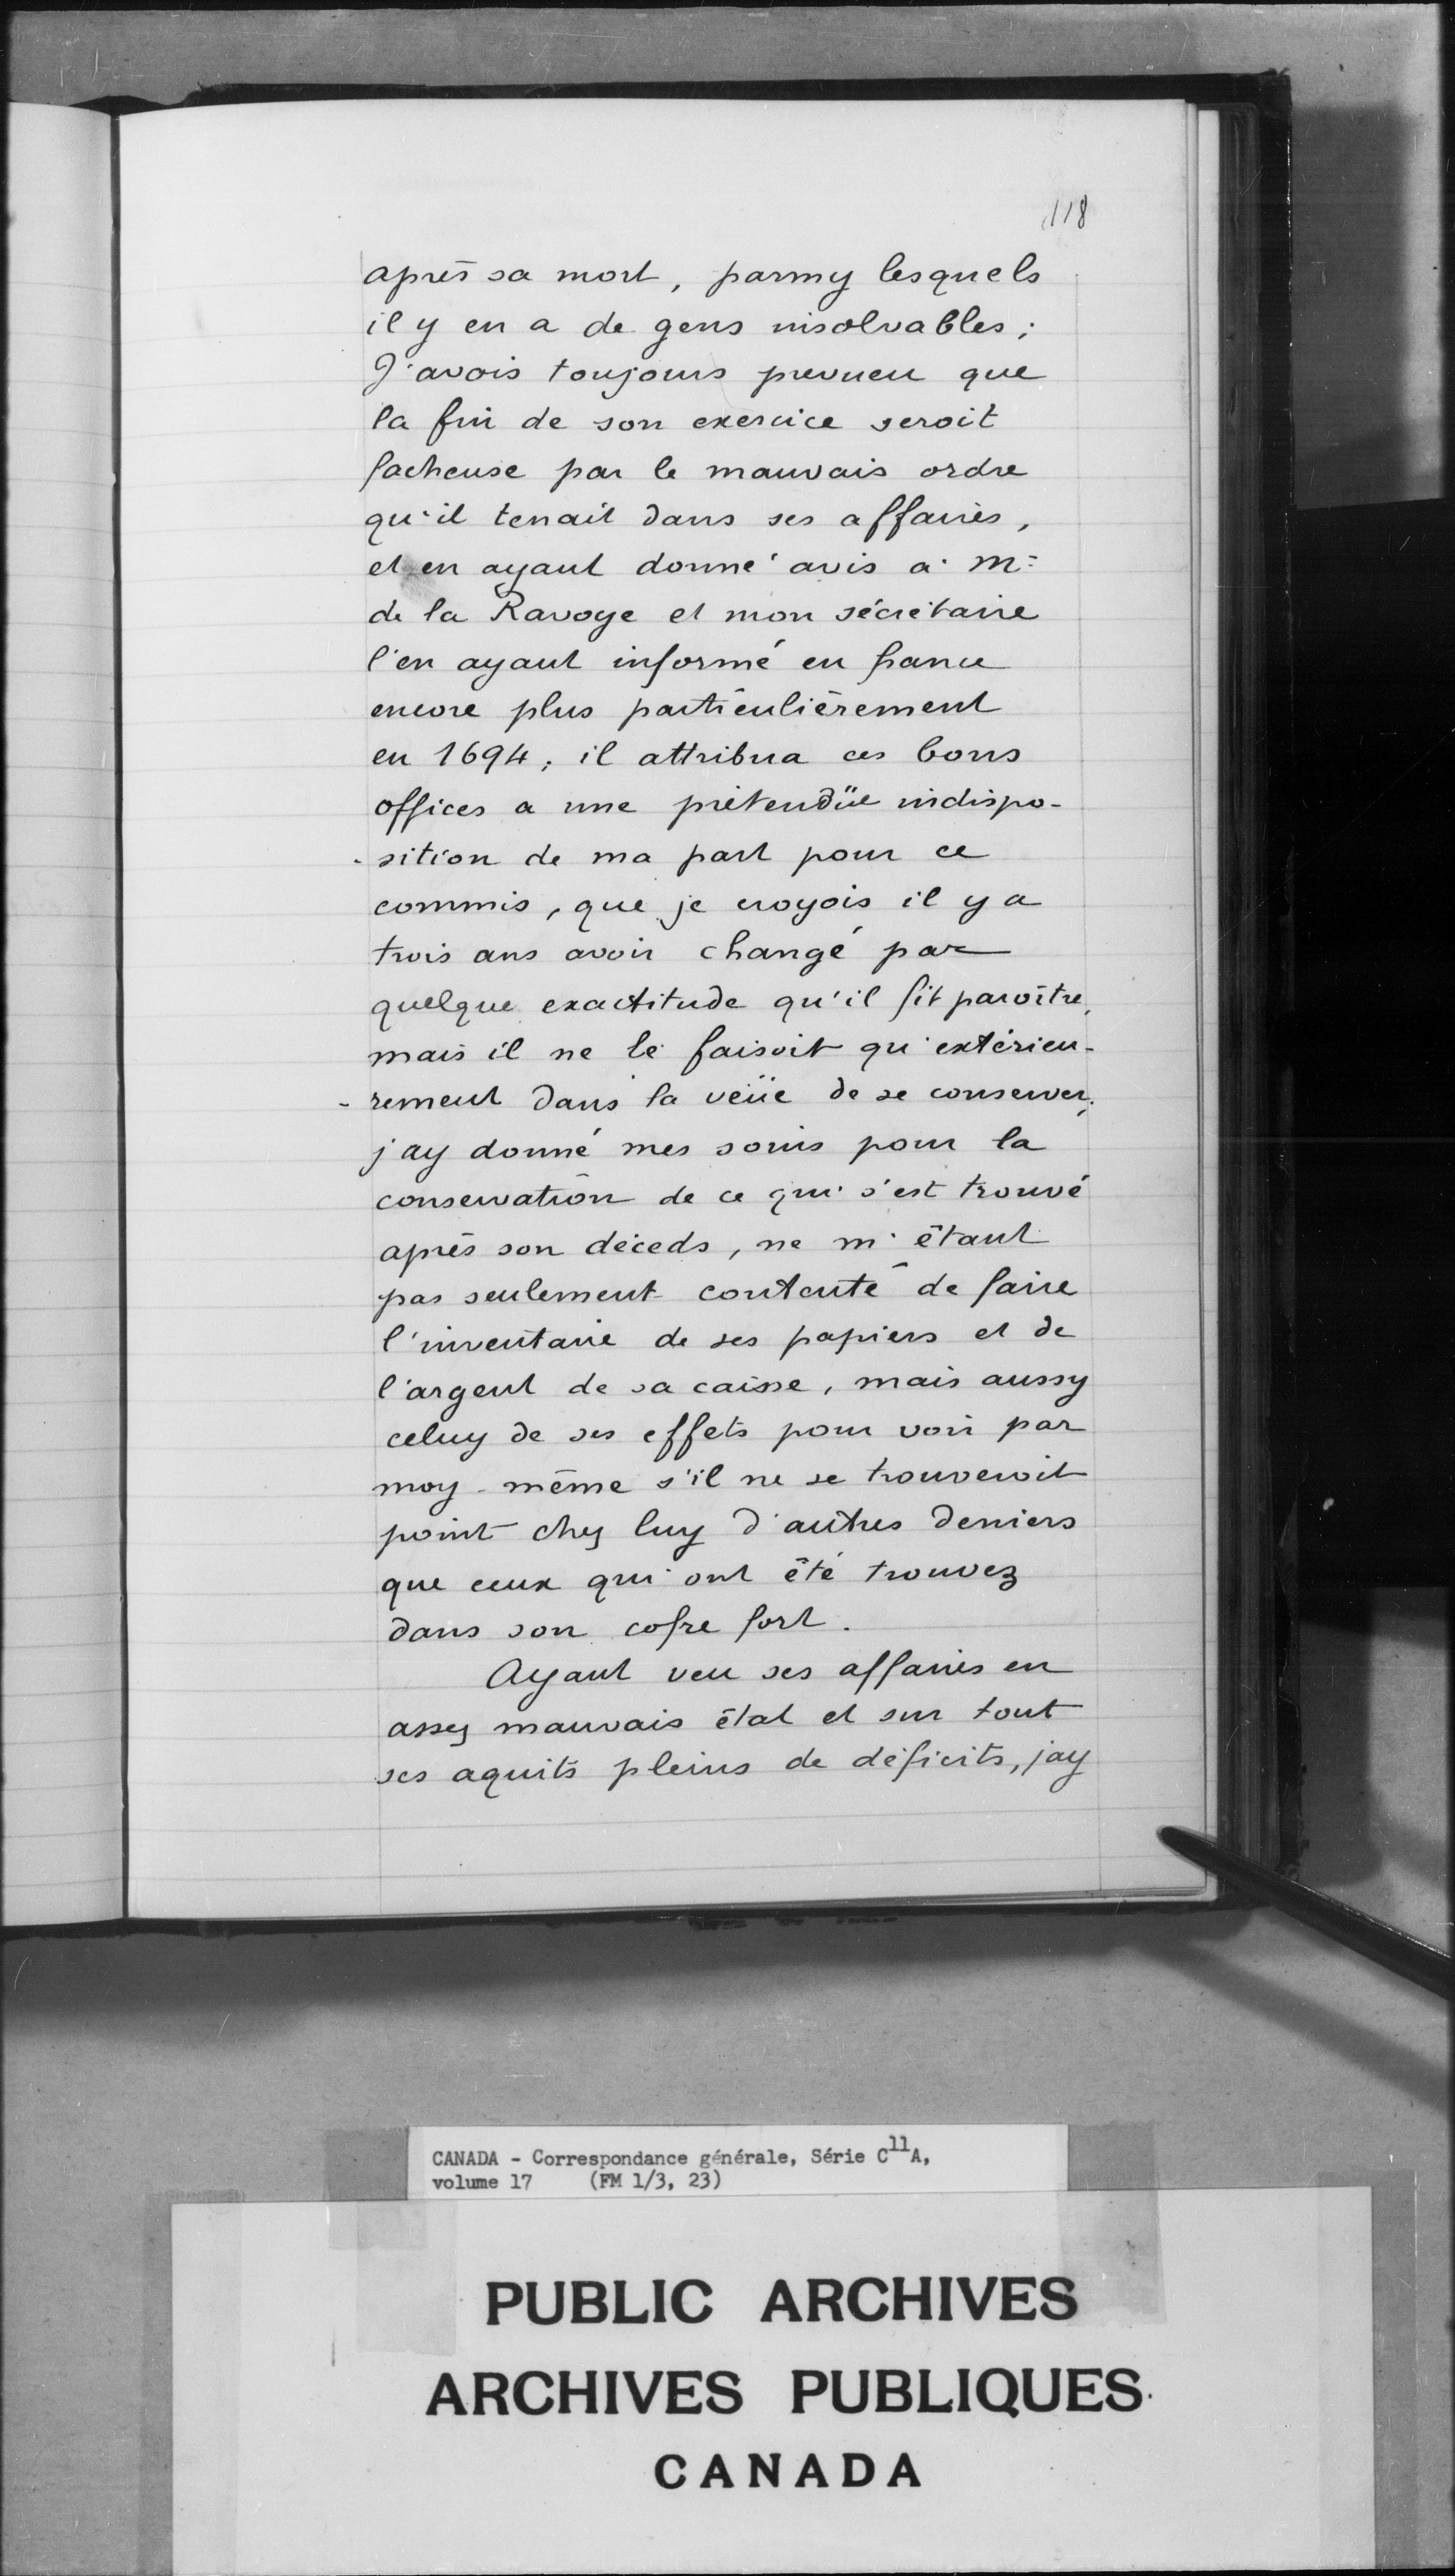 118
après sa mort, parmy lesquels
il y en a de gens insolvables;
J'avois toujours preuveu que
la fin de son exercice seroit
facheuse par le mauvais ordre
qu'il tenait dans ses affaires,
et en ayant donné avis a Mr
de la Ravoye et mon sécrétaire
l'en ayant informé en france
encore plus particulièrement
en 1694; il attribua ces bons
offices a une prétendüe indispo-
-sition de ma part pour ce
commis, que je croyois il y a
trois ans avoir changé par
quelque exactitude qu'il fit paroître,
mais il ne le faisoit qu'extérieu-
-rement dans la veüe de se conserver;
j'ay donné mes soins pour la
conservation de ce qui s'est trouvé
après son déceds, ne m'étant
pas seulement contenté de faire
l'inventaire de ses papiers et de
l'argent de sa caisse, mais aussy
celuy de ses effets pour voir par
moy-même s'il ne se trouveroit
point chez luy d'autres deniers
que ceux qui ont été trouvez
dans son cofre fort.
Ayant veu ses affaires en
assez mauvais état et sur tout
ses aquits pleins de déficits, jay
CANADA - Correspondance générale, Série C11A,
volume 17 (FM 1/3, 23)
PUBLIC ARCHIVES
ARCHIVES PUBLIQUES
CANADA